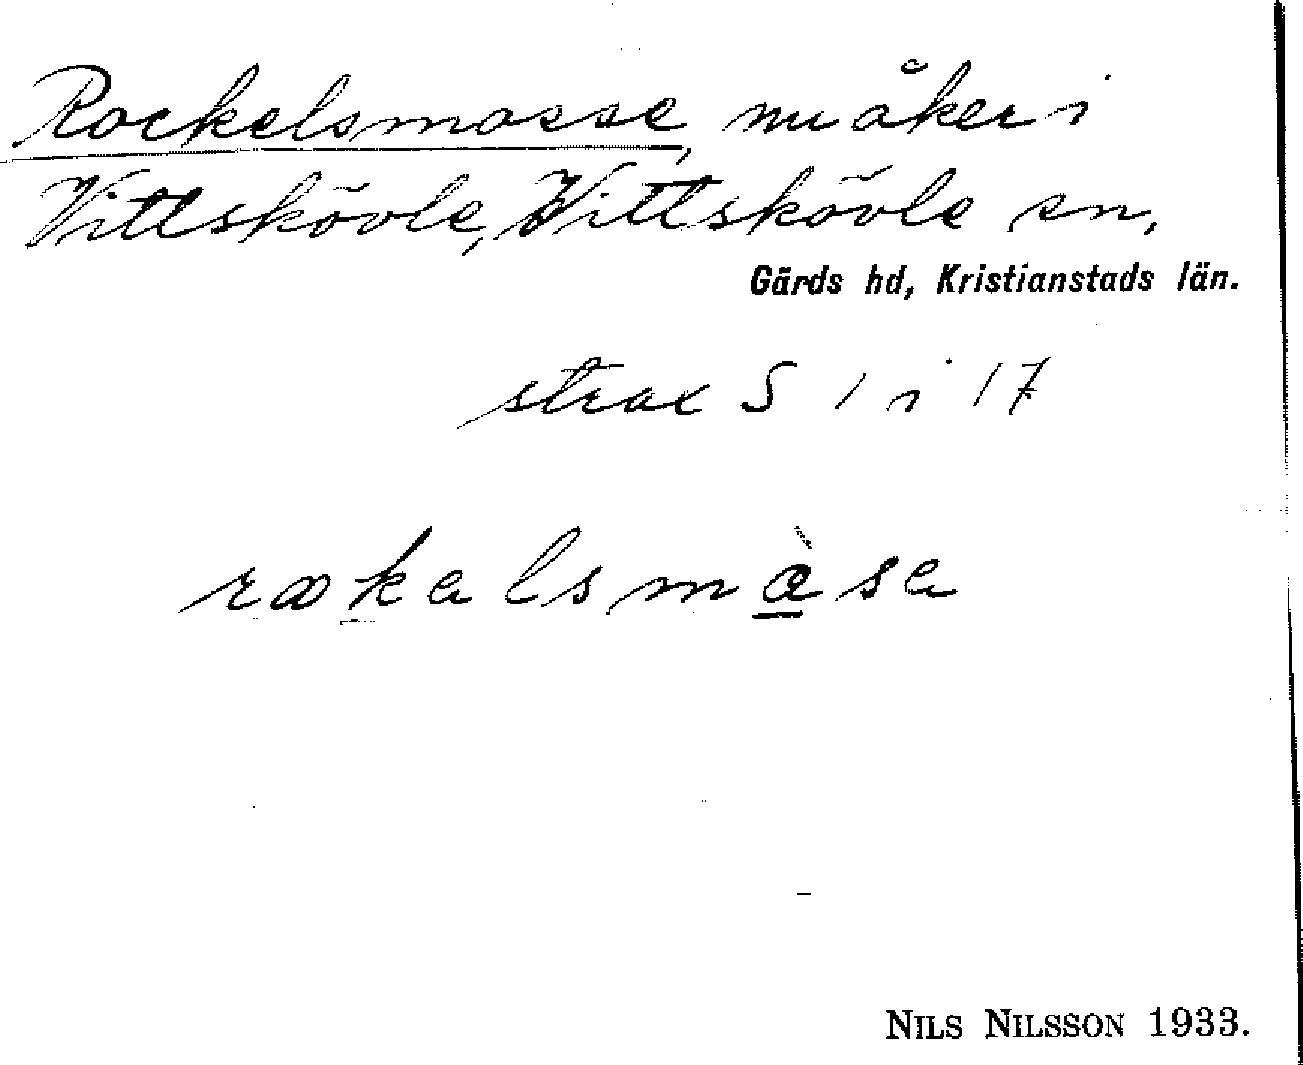 Rockelsmosse, nu åker i
Vittskövle, Vittskövle sn,
Gärds hd, Kristianstads län.
strax S 1 i 17
NILS NILSSON 1933.